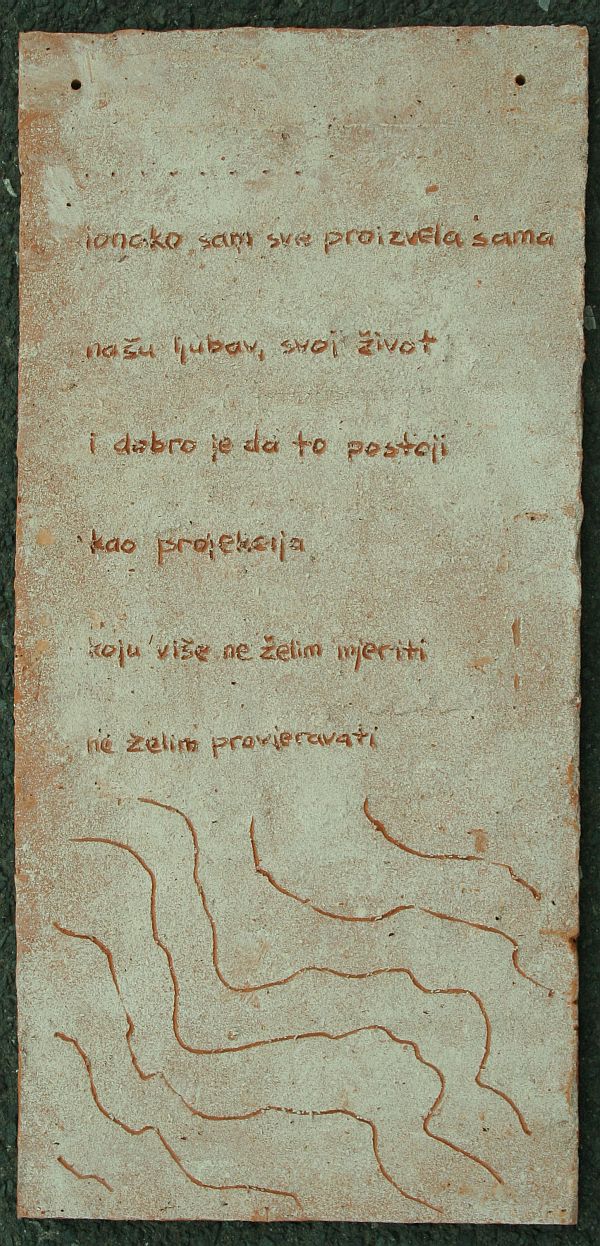 . . . . . . . . . . .
ionako sam sve proizvela sama
našu ljubav, svoj život
i dobro je da to postoji
kao projekcija
koju više ne želim mjeriti
ne želim provjeravati